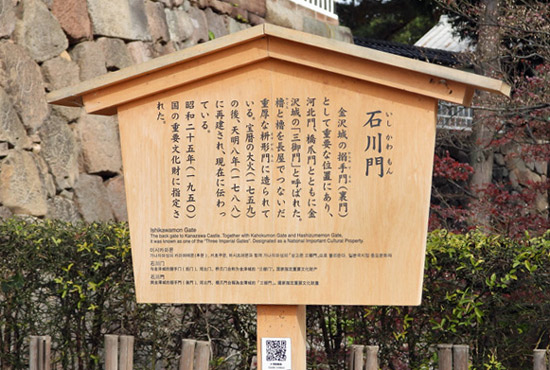 石川門
いしかわもん
金沢城の搦手門（裏門）
として重要な位置にあり、
河北門、橋爪門とともに金
沢城の「三御門」と呼ばれた。
櫓と櫓を長屋でつないだ
重厚な枡形門に造られて
いる。宝暦の大火（一七五九）
の後、天明八年（一七八八）
に再建され、現在に伝わっ
ている。
昭和二十五年（一九五〇）
国の重要文化財に指定さ
れた。
Ishikawamon Gate
The back gate to Kanazawa Castle. Together with Kahokumon Gate and Hashizumemon Gate,
it was known as one of the "Three Imperial Gates". Designated as a National Important Cultural Property.
石川门
石川門